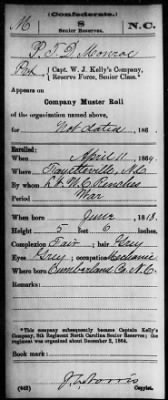 (Confederate)
M S N.C.
Senior Reserves.
P. T. D. Monroe
Pvt, Capt. W. J. Kelly's Company,
Reserve Force, Senior Class.*
Appears on
Company Muster Roll
of the organization named above,
for Not Dated, 186
Enlisted:
When April 11, 1864.
Where Fayetteville, N.C.
By whom
Period War
When born June, 1818.
Height 5 feet 6 inches.
Complexion Fair; hair Grey
Eyes Grey; occupation Mechanic
Where born Cumberland Co. N.C.
Remarks:
*This company subsequently became Captain Kelly's
Company, 8th Regiment North Carolina Senior Reserves; the
regiment was organized about December 2, 1864.
Book mark:
(642)
Copyist.